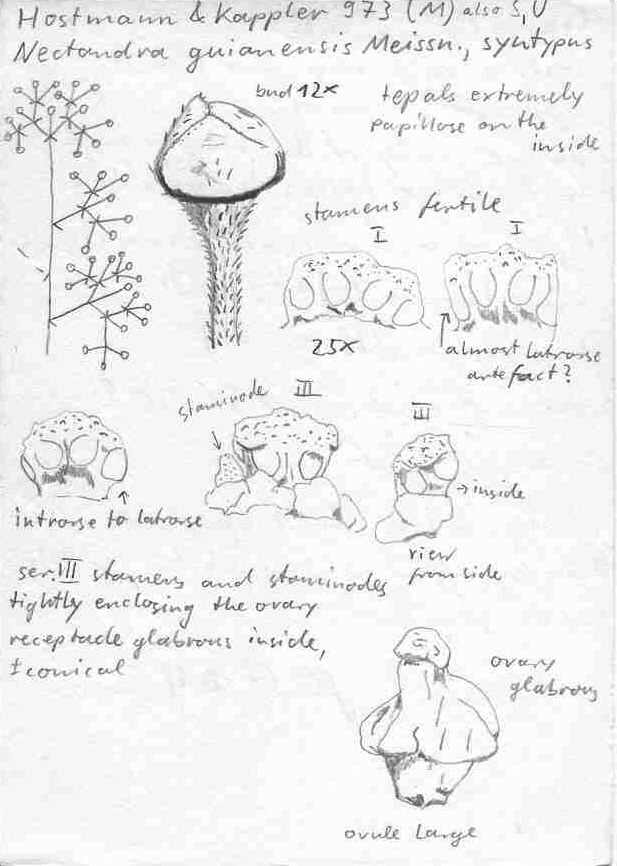 Hostmann & Kappler 973 (M) also S, U
Nectandra guianensis Meissn., syntypus
bud 12x
tepals extremely
papillose on the
inside
stamens fertile
I
I
25x
almost latrorse
artefact?
staminode
III
III
→ inside
introrse to latrorse
view
from side
ser. III stamens and staminodes
tightly enclosing the ovary
receptacle glabrous inside,
± conical
ovary
glabrous
ovule large